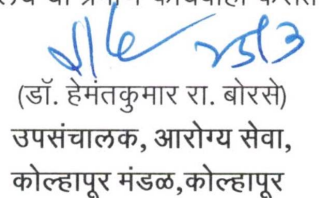 (डॉ. हेमंतकुमार रा. बोरसे)
उपसंचालक, आरोग्य सेवा,
कोल्हापूर मंडळ,कोल्हापूर